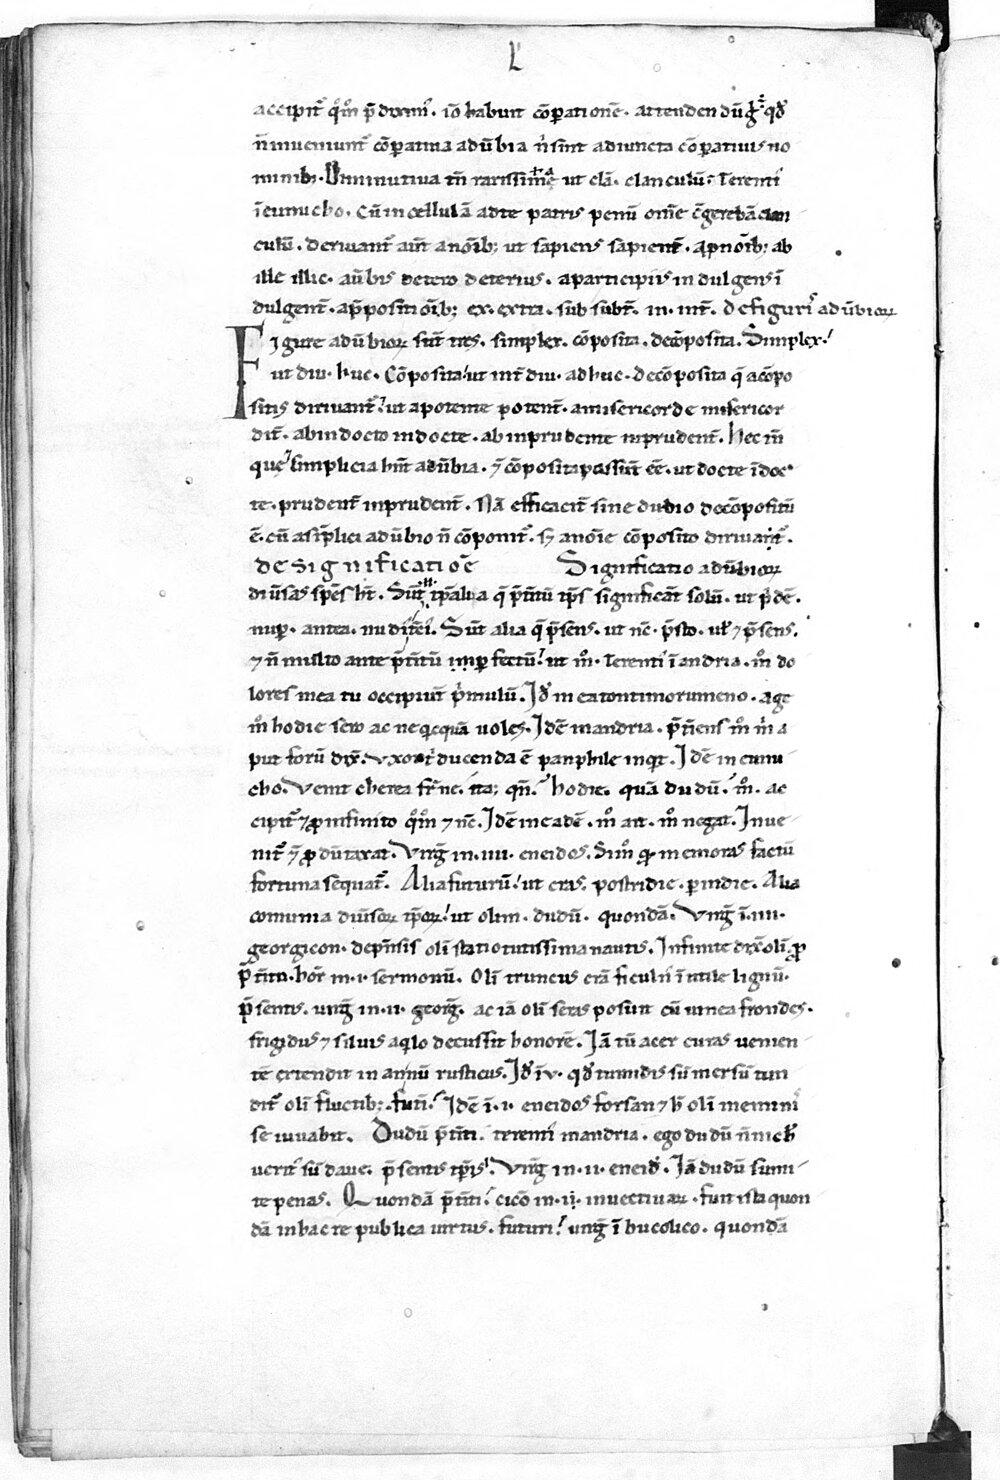 L
accipit̃ q̊m̃ p̃dixim⁹. iõ habunt cõparationẽ. attendendũ g̃ qđ
ñ inueniunt̃ cõparatiua adũbia ñ sint adiuncta cõparatiuis no
minib;. Diminutiua tñ rarissime ut clã. clanculũ. Terenti⁹
ĩ eunucho. Cũ in cellulã ad te patris penũ om̃e c̃gerebã clan
culũ. deriuant̃ aut̃ a noĩb; ut sapiens sapient̃. a p̱noĩb; ab
ille illic. a ũbis detero deterius. a participiis indulgens ĩ
dulgent̃. a p̃positiõib; ex. extra. sub subt̃. in. int̃. de figuris adũbiorꝝ
Figure adũbiorꝝ sũt tres. simplex. cõposita. decõposita. Simplex.
ut diu. huc. Cõposita ut int̃diu. adhuc. decõposita q̃ a cõpo
sitis diriuant̃ ut a potente potent̃. a misericorde misericor
dit̃. ab indocto indocte. ab inprudente inprudent̃. Hec im̃
que simplicia hñt adũbia. ⁊ cõposita possũt eẽ. ut docte ĩdoc
te. prudent̃ inprudent̃. Nã efficacit̃ sine dubio decõpositũ
ẽ. cũ a sĩplici adũbio ñ cõponit̃. s; a noĩe cõposito diriuat̃.
de significatiõe Significatio adũbiorꝝ
diũsas sp̃es ht̃. Sũt tp̃alia q̃ p̃titũ tp̃s significãt solũ. ut p̃dẽ.
nup̱. antea. nudit̃ci⁹. Sũt alia q̃ p̃sens. ut nc̃. p̃sto. ul̃ ⁊ p̃sens.
⁊ ñ multo ante p̃titũ inp̱fectũ ut m̊. Terenti⁹ ĩ andria. m̊ do
lores mea tu occipiũt p̃mulũ. Iđ in eatontimorumeno. age
m̊ hodie sero ac neq̃cquã uoles. Idẽ in andria. p̃t̃iens m̊ m̃ a
put forũ dix̃. uxor t̃ ducenda ẽ panphile inq̃t. Idẽ in eunu
cho. Venit cherea fr̃. nc̃. ita; qñ. hodie. quã dudũ. m̊. ac
cipit̃ ⁊ ꝓ infinito q̊m̃ ⁊ nc̃. Idẽ in eadẽ. m̊ ait. m̊ negat. Inue
nit̃ ⁊ ꝓ dũtaxat. Virg̃ in .iiii. eneidos. Sim̊ q̃ memoras factũ
fortuna sequat̃. Alia futurũ ut cras. postridie. p̱indie. Alia
comunia diũsorꝝ tp̃orꝝ ut olim. dudũ. quondã. Virg̃ ĩ .iiii.
georgicon. dep̃nsis oli statio tutissima nautis. Infinite dix̃ oli ꝓ
p̃tito. hor̃ in .i. sermonũ. Oli truncus erã ficuln⁹ ĩutile lignũ.
p̃sentis. uirg̃ in .ii. georg̃. ac iã oli seras posuit cũ uinea frondes.
frigidus ⁊ siluis aq̃lo decussit honorẽ. Iã tũ acer curas uenien
tẽ extendit in annũ rusticus. Iđ ĩ .v. qđ tumidis sũmersũ tun
dit̃ oli fluctib;. fut̃i. Idẽ ĩ .i. eneidos forsan ⁊ h̃ oli memini
se iuuabit. Dudũ p̃titi. terenti⁹ in andria. ego dudũ ñ nichil
uerit⁹ sũ daue. p̃sentis tp̃is. Virg̃ in .ii. eneid̃. Iã dudũ sumi
te penas. Quondã p̃titi. cicõ in .ii. inuectiuarꝝ. fuit ista quon
dã in hac re publica uirtus. futuri. uirg̃ ĩ bucolico. quondã